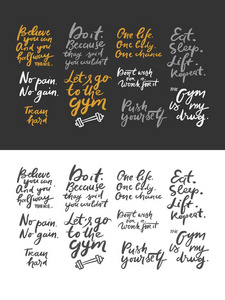 Believe
you can
And you
halfway
there.
Do it.
Because
they said
you couldn't
One life.
One body.
One chance
Eat.
Sleep.
Lift.
Repeat.
No pain.
No gain.
Let's go
to the
Gym
Don't wish
for it
Work for it
Train
hard
Push
yourself
THE
Gym
is my
drug.
Believe
you can
And you
halfway
there.
Do it.
Because
they said
you couldn't
One life.
One body.
One chance
Eat.
Sleep.
Lift.
Repeat.
No pain.
No gain.
Let's go
to the
Gym
Don't wish
for it
Work for it
Train
hard
Push
yourself
THE
Gym
is my
drug.